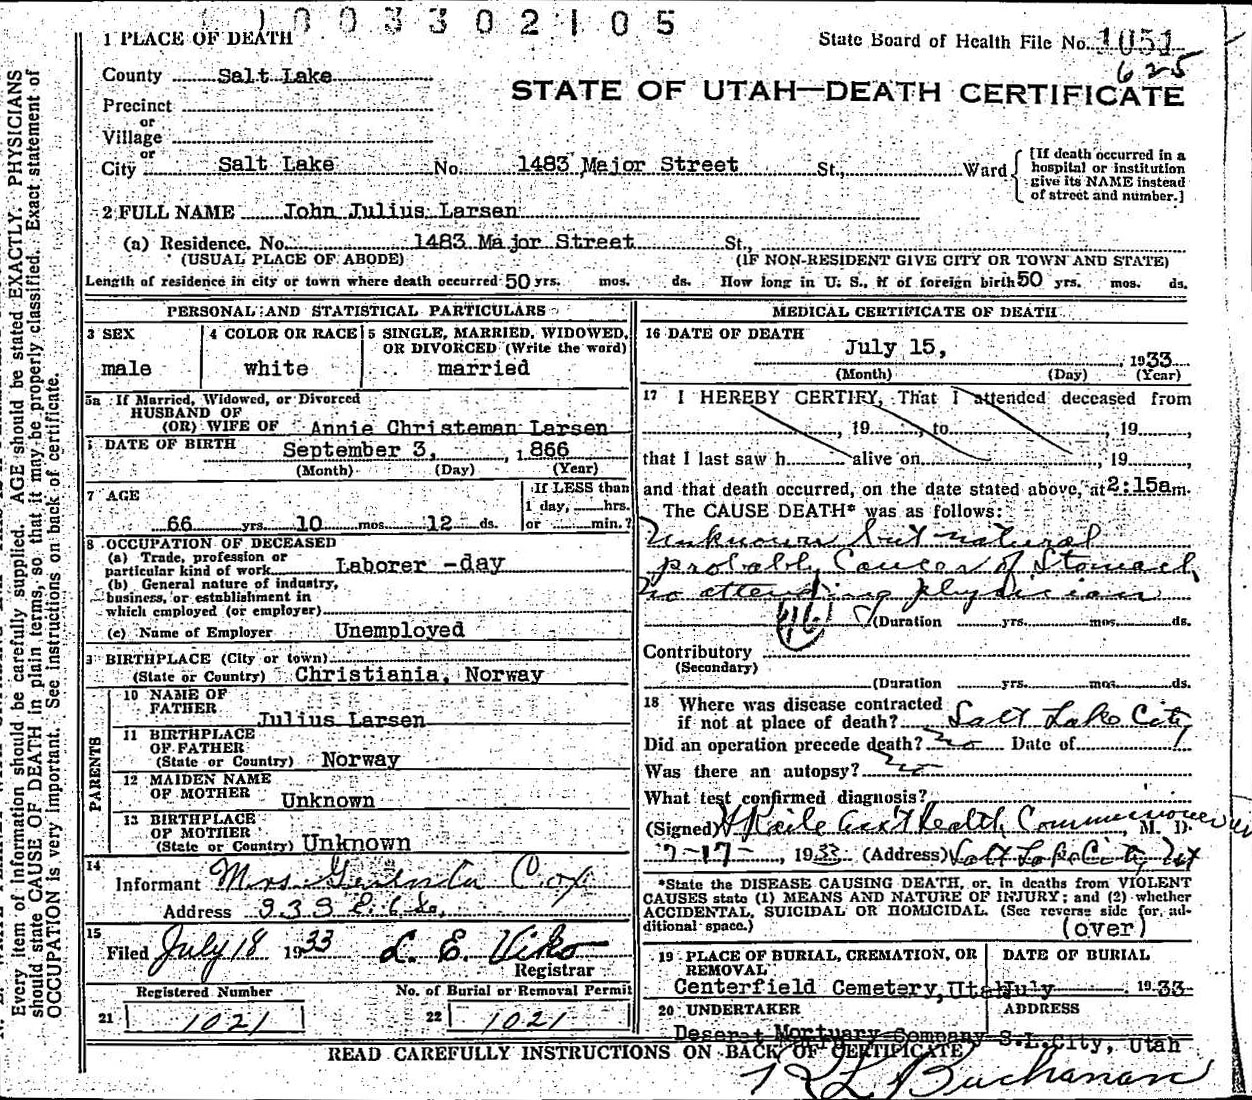 003302105
1 PLACE OF DEATH
State Board of Health File No. 1051
625
County Salt Lake
STATE OF UTAH—DEATH CERTIFICATE
Precinct
or
Village
or
City Salt Lake No. 1483 Major Street St., Ward
[If death occurred in a
hospital or institution
give its NAME instead
of street and number.]
2 FULL NAME John Julius Larsen
(a) Residence. No. 1483 Major Street St.,
(USUAL PLACE OF ABODE) (IF NON-RESIDENT GIVE CITY OR TOWN AND STATE)
Length of residence in city or town where death occurred 50 yrs. mos. ds. How long in U. S., if of foreign birth 50 yrs. mos. ds.
PERSONAL AND STATISTICAL PARTICULARS
3 SEX
male
4 COLOR OR RACE
white
5 SINGLE, MARRIED, WIDOWED,
OR DIVORCED (Write the word)
married
5a If Married, Widowed, or Divorced
HUSBAND OF
(OR) WIFE OF Annie Christeman Larsen
DATE OF BIRTH
September 3, 1866
(Month) (Day) (Year)
7 AGE
66 yrs. 10 mos. 12 ds.
If LESS than
1 day, hrs.
or min.?
8 OCCUPATION OF DECEASED
(a) Trade, profession or
particular kind of work Laborer -day
(b) General nature of industry,
business, or establishment in
which employed (or employer)
(c) Name of Employer Unemployed
BIRTHPLACE (City or town)
(State or Country) Christiania, Norway
PARENTS
10 NAME OF
FATHER
Julius Larsen
11 BIRTHPLACE
OF FATHER
(State or Country) Norway
12 MAIDEN NAME
OF MOTHER
Unknown
13 BIRTHPLACE
OF MOTHER
(State or Country) Unknown
14
Informant Mrs Cox
Address 939 E. 6 So.
15
Filed July 18 1933 L. E. Viko
Registrar
Registered Number
21 1021
No. of Burial or Removal Permit
22 1021
MEDICAL CERTIFICATE OF DEATH
16 DATE OF DEATH
July 15, 1933
(Month) (Day) (Year)
17 I HEREBY CERTIFY, That I attended deceased from
, 19 , to , 19 ,
that I last saw h alive on , 19 ,
and that death occurred, on the date stated above, at 2:15a m.
The CAUSE DEATH* was as follows:
Unknown but natural
probably Cancer of Stomach
no attending physician
46
(Duration yrs. mos. ds.
Contributory
(Secondary)
(Duration yrs. mos. ds.
18 Where was disease contracted
if not at place of death? Salt Lake City
Did an operation precede death? no Date of
Was there an autopsy? no
What test confirmed diagnosis?
(Signed) Health Commissioner, M. D.
7-17-, 1933 (Address) Salt Lake City Ut
*State the DISEASE CAUSING DEATH, or, in deaths from VIOLENT
CAUSES state (1) MEANS AND NATURE OF INJURY; and (2) whether
ACCIDENTAL, SUICIDAL OR HOMICIDAL. (See reverse side for ad-
ditional space.)
(over)
19 PLACE OF BURIAL, CREMATION, OR
REMOVAL
Centerfield Cemetery, Utah
DATE OF BURIAL
July 1933
20 UNDERTAKER
Deseret Mortuary Company
ADDRESS
S.L.City, Utah
READ CAREFULLY INSTRUCTIONS ON BACK OF CERTIFICATE
Buchanan
Every item of information should be carefully supplied. AGE should be stated EXACTLY. PHYSICIANS
should state CAUSE OF DEATH in plain terms, so that it may be properly classified. Exact statement of
OCCUPATION is very important. See instructions on back of certificate.